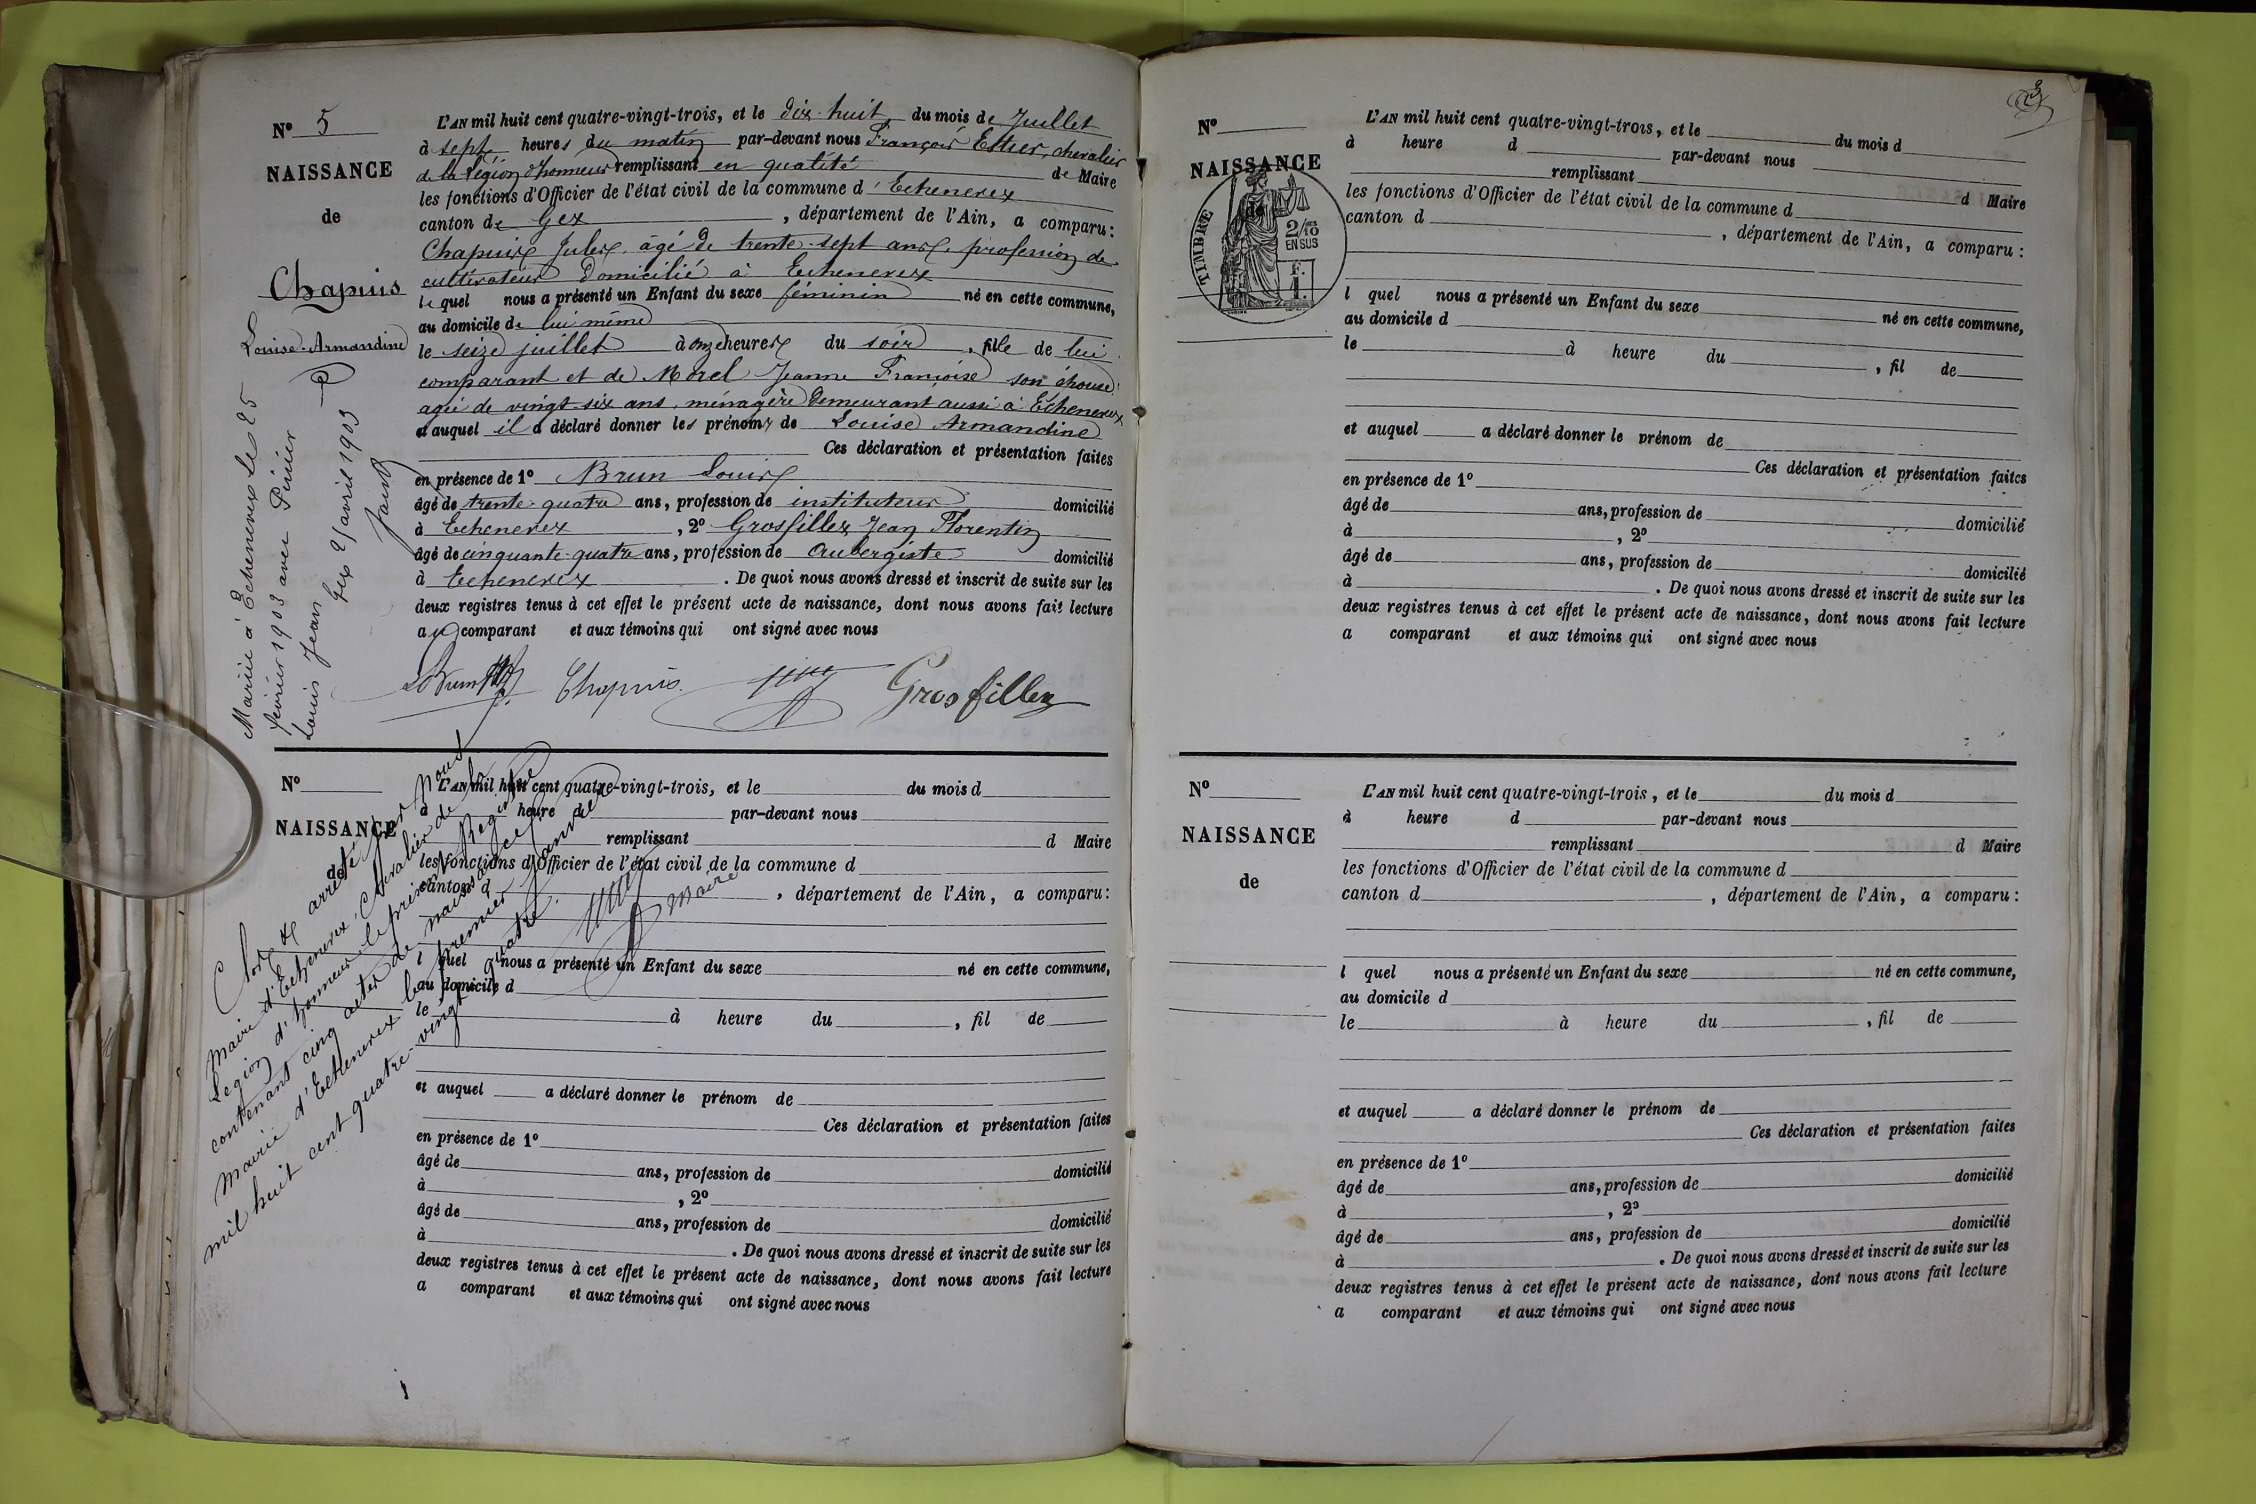 N° 5
NAISSANCE
de
Chapuis
Louise-Armandine
Mariée à Echenevex le 25
février 1903 avec Périer
Louis Jean
Gex 2 avril 1903
L'AN mil huit cent quatre-vingt-trois, et le dix-huit du mois de Juillet
à sept heures du matin par-devant nous François Estier, chevalier
de la Légion d'honneur remplissant en qualité de Maire
les fonctions d'Officier de l'état civil de la commune d'Echenevex
canton de Gex, département de l'Ain, a comparu:
Chapuis Jules, âgé de trente-sept ans, profession de
cultivateur domicilié à Echenevex
lequel nous a présenté un Enfant du sexe féminin né en cette commune,
au domicile de lui même
le seize juillet à onze heures du soir, fille de lui
comparant et de Morel Jeanne Françoise son épouse
agée de vingt-six ans, ménagère demeurant aussi à Echenevex
et auquel il a déclaré donner les prénoms de Louise Armandine
Ces déclaration et présentation faites
en présence de 1° Brun Louis
âgé de trente-quatre ans, profession de instituteur domicilié
à Echenevex, 2° Grosfillex Jean Florentin
âgé de cinquante-quatre ans, profession de Aubergiste domicilié
à Echenevex. De quoi nous avons dressé et inscrit de suite sur les
deux registres tenus à cet effet le présent acte de naissance, dont nous avons fait lecture
au comparant et aux témoins qui ont signé avec nous
LBrun Chapuis Grosfillex
N°
NAISSANCE
de
L'AN mil huit cent quatre-vingt-trois, et le du mois d
à heure d par-devant nous
remplissant d Maire
les fonctions d'Officier de l'état civil de la commune d
canton d , département de l'Ain, a comparu:
l quel nous a présenté un Enfant du sexe né en cette commune,
au domicile d
le à heure du , fil de
et auquel a déclaré donner le prénom de
Ces déclaration et présentation faites
en présence de 1°
âgé de ans, profession de domicilié
à , 2°
âgé de ans, profession de domicilié
à . De quoi nous avons dressé et inscrit de suite sur les
deux registres tenus à cet effet le présent acte de naissance, dont nous avons fait lecture
a comparant et aux témoins qui ont signé avec nous
Clos et arrêté par Nous
Maire d'Echenevex, Chevalier de la
Legion d'honneur le présent Registre
contenant cinq actes de naissances
Mairie d'Echenevex le premier Janvier
mil huit cent quatre-vingt quatre.
Maire
3
N°
NAISSANCE
de
TIMBRE
2/10
EN SUS
F.
1.
L'AN mil huit cent quatre-vingt-trois, et le du mois d
à heure d par-devant nous
remplissant d Maire
les fonctions d'Officier de l'état civil de la commune d
canton d , département de l'Ain, a comparu:
l quel nous a présenté un Enfant du sexe né en cette commune,
au domicile d
le à heure du , fil de
et auquel a déclaré donner le prénom de
Ces déclaration et présentation faites
en présence de 1°
âgé de ans, profession de domicilié
à , 2°
âgé de ans, profession de domicilié
à . De quoi nous avons dressé et inscrit de suite sur les
deux registres tenus à cet effet le présent acte de naissance, dont nous avons fait lecture
a comparant et aux témoins qui ont signé avec nous
N°
NAISSANCE
de
L'AN mil huit cent quatre-vingt-trois, et le du mois d
à heure d par-devant nous
remplissant d Maire
les fonctions d'Officier de l'état civil de la commune d
canton d , département de l'Ain, a comparu:
l quel nous a présenté un Enfant du sexe né en cette commune,
au domicile d
le à heure du , fil de
et auquel a déclaré donner le prénom de
Ces déclaration et présentation faites
en présence de 1°
âgé de ans, profession de domicilié
à , 2°
âgé de ans, profession de domicilié
à . De quoi nous avons dressé et inscrit de suite sur les
deux registres tenus à cet effet le présent acte de naissance, dont nous avons fait lecture
a comparant et aux témoins qui ont signé avec nous